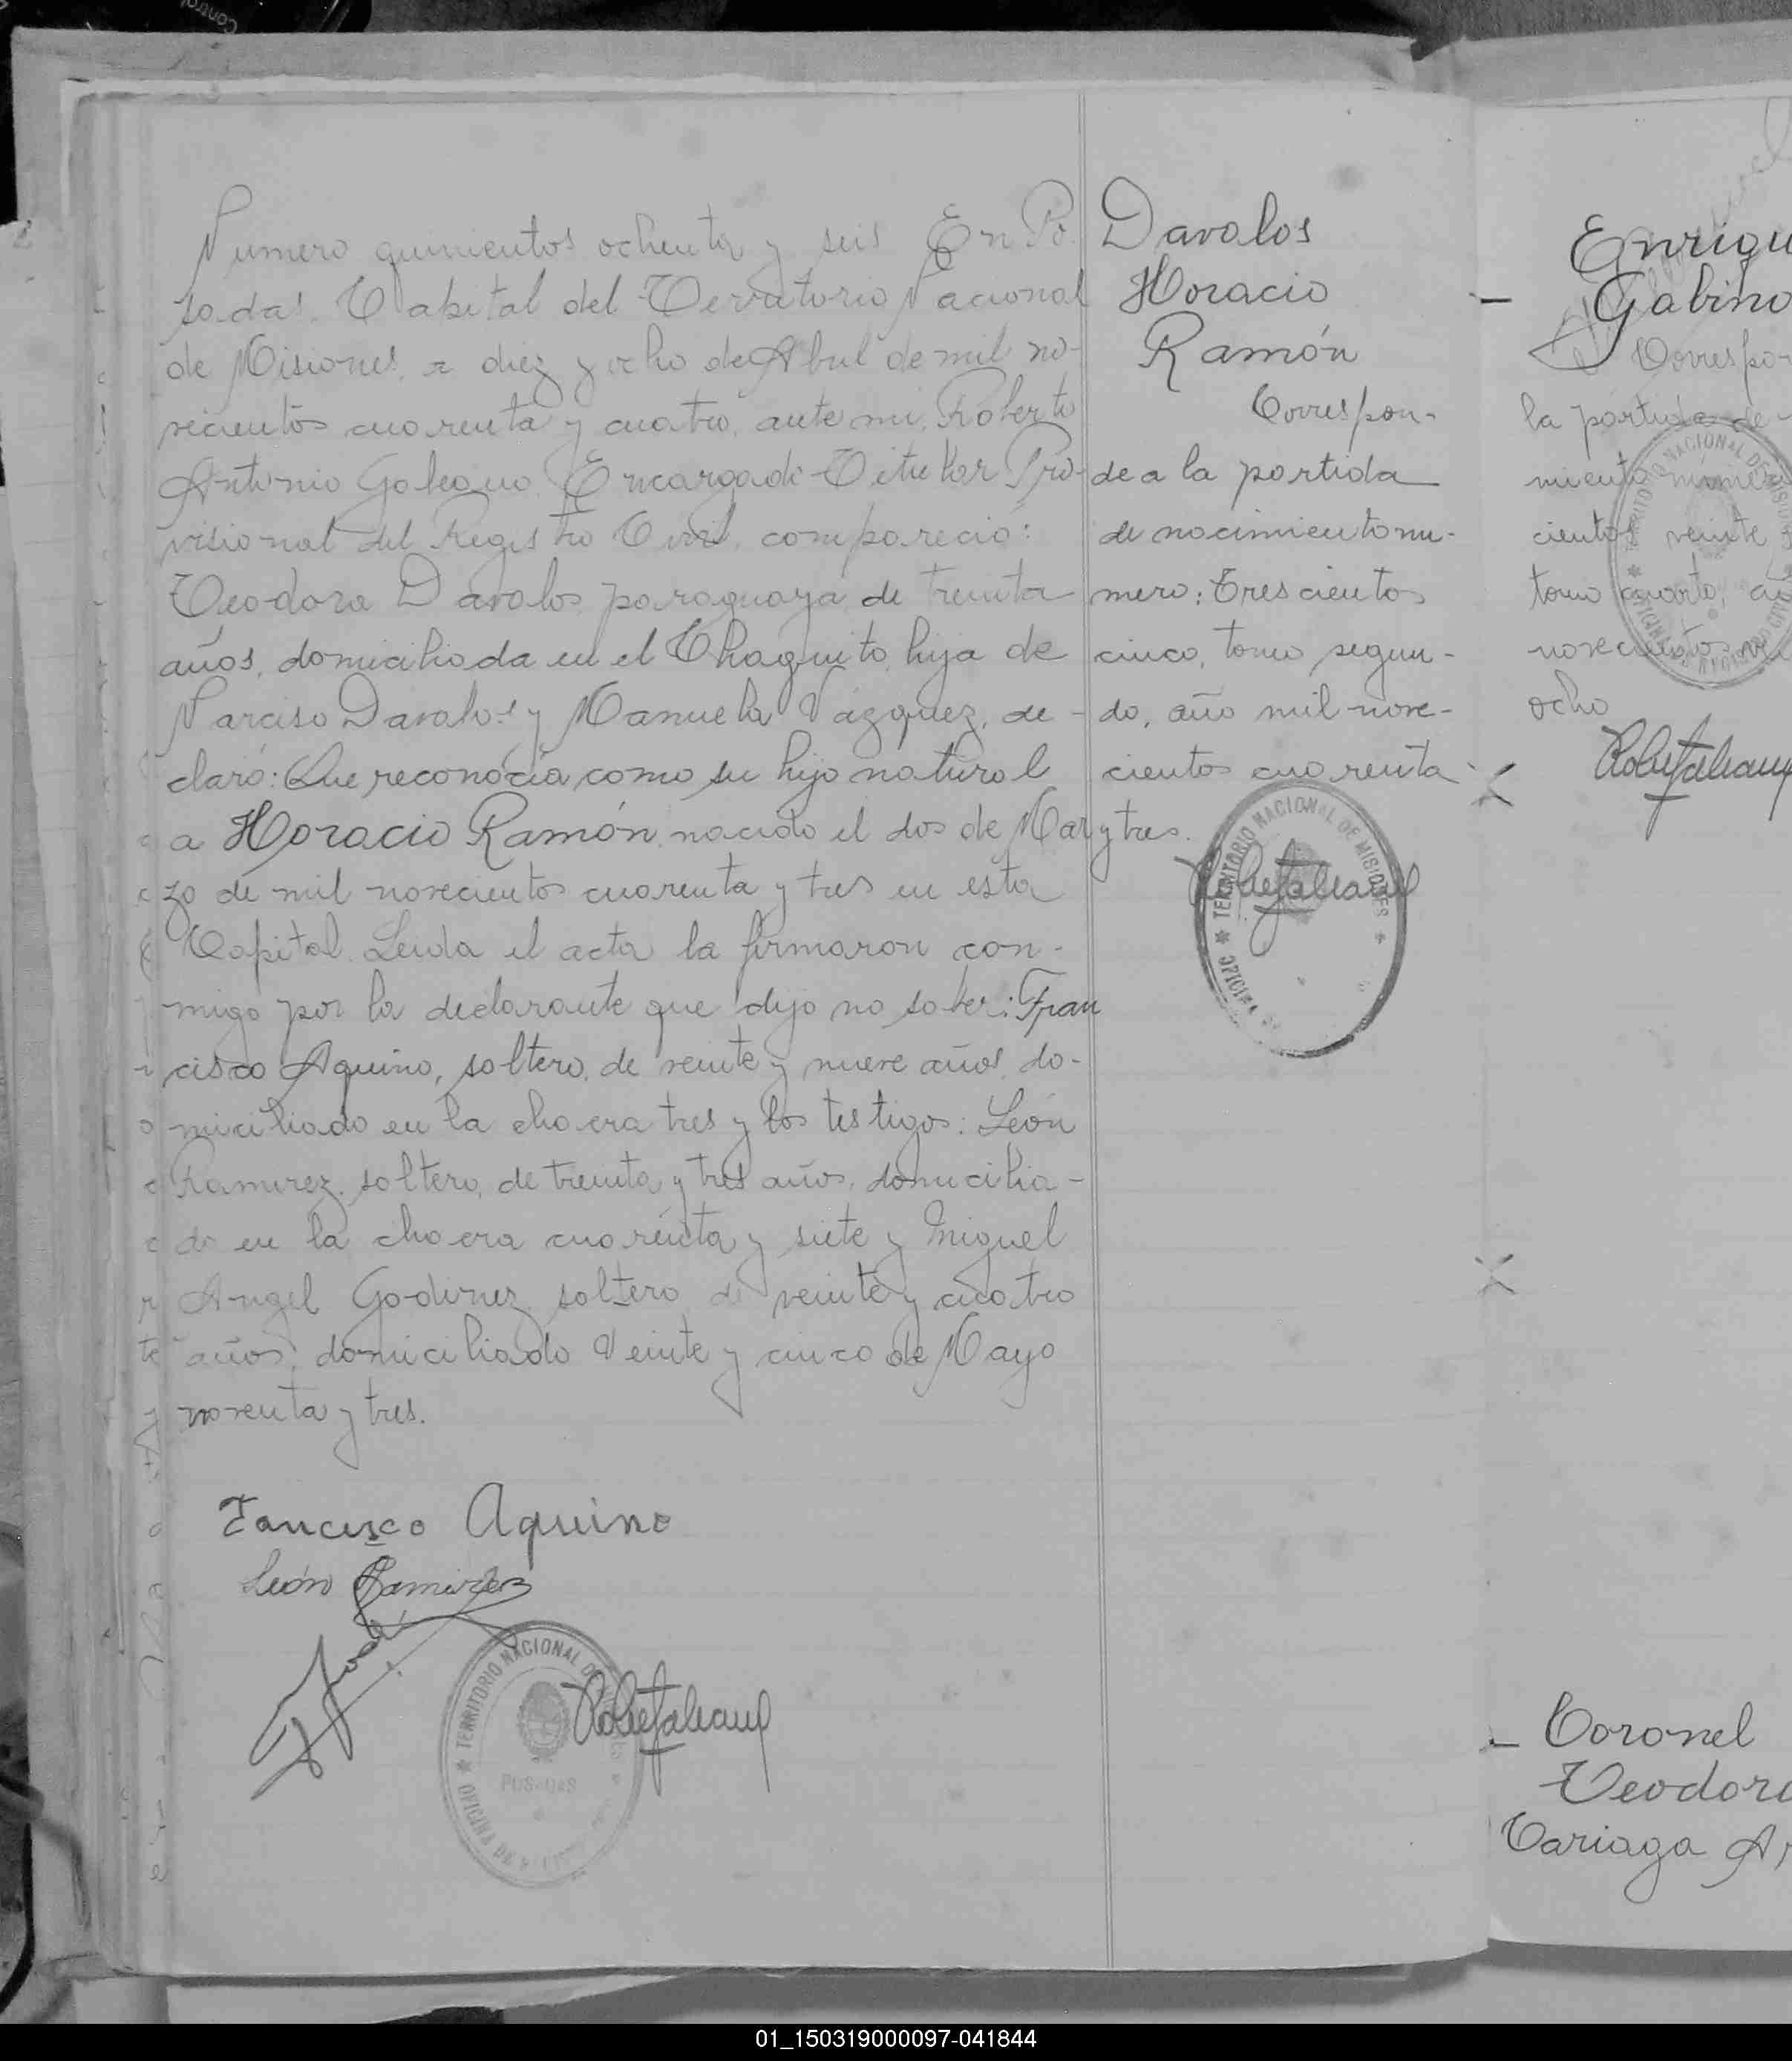 Numero quinientos ochenta y seis En Po-
sadas. Capital del Territorio Nacional
de Misiones, a diez y ocho de Abril de mil no-
vecientos cuarenta y cuatro, ante mi, Roberto
Antonio Galeano Encargado Titular Pro-
visional del Registro Civil, compareció:
Teodora Davalos, paraguaya, de treinta
años, domiciliada en el Chaquito, hija de
Narciso Davalos y Manuela Vázquez, de-
claró: Que reconocía como su hijo natural
a Horacio Ramón, nacido el dos de Mar
zo de mil novecientos cuarenta y tres en esta
Capital. Leida el acta la firmaron con-
migo por la declarante que dijo no saber: Fran
cisco Aquino, soltero, de veinte y nueve años, do-
miciliado en la chacra tres y los testigos: León
Ramirez, soltero, de treinta y tres años, domicilia-
do en la chacra cuarenta y siete y Miguel
Angel Godinez, soltero, de veinte y cuatro
años, domiciliado Veinte y cinco de Mayo
noventa y tres.
Fancisco Aquino
León Ramirez
TERRITORIO NACIONAL DE MISIONES
POSADAS
OFICINA DE
Davalos
Horacio
Ramón
Correspon-
de a la partida
de nacimiento nu-
mero: Trescientos
cinco, tomo segun-
do, año mil nove-
cientos cuarenta
y tres.
TERRITORIO NACIONAL DE MISIONES
OFICINA
Enriqu
Gabino
Correspon
la partida de
miento número
cientos veinte
tomo cuarto,
novecientos
ocho
Coronel
Teodoro
Cariaga
01_150319000097-041844